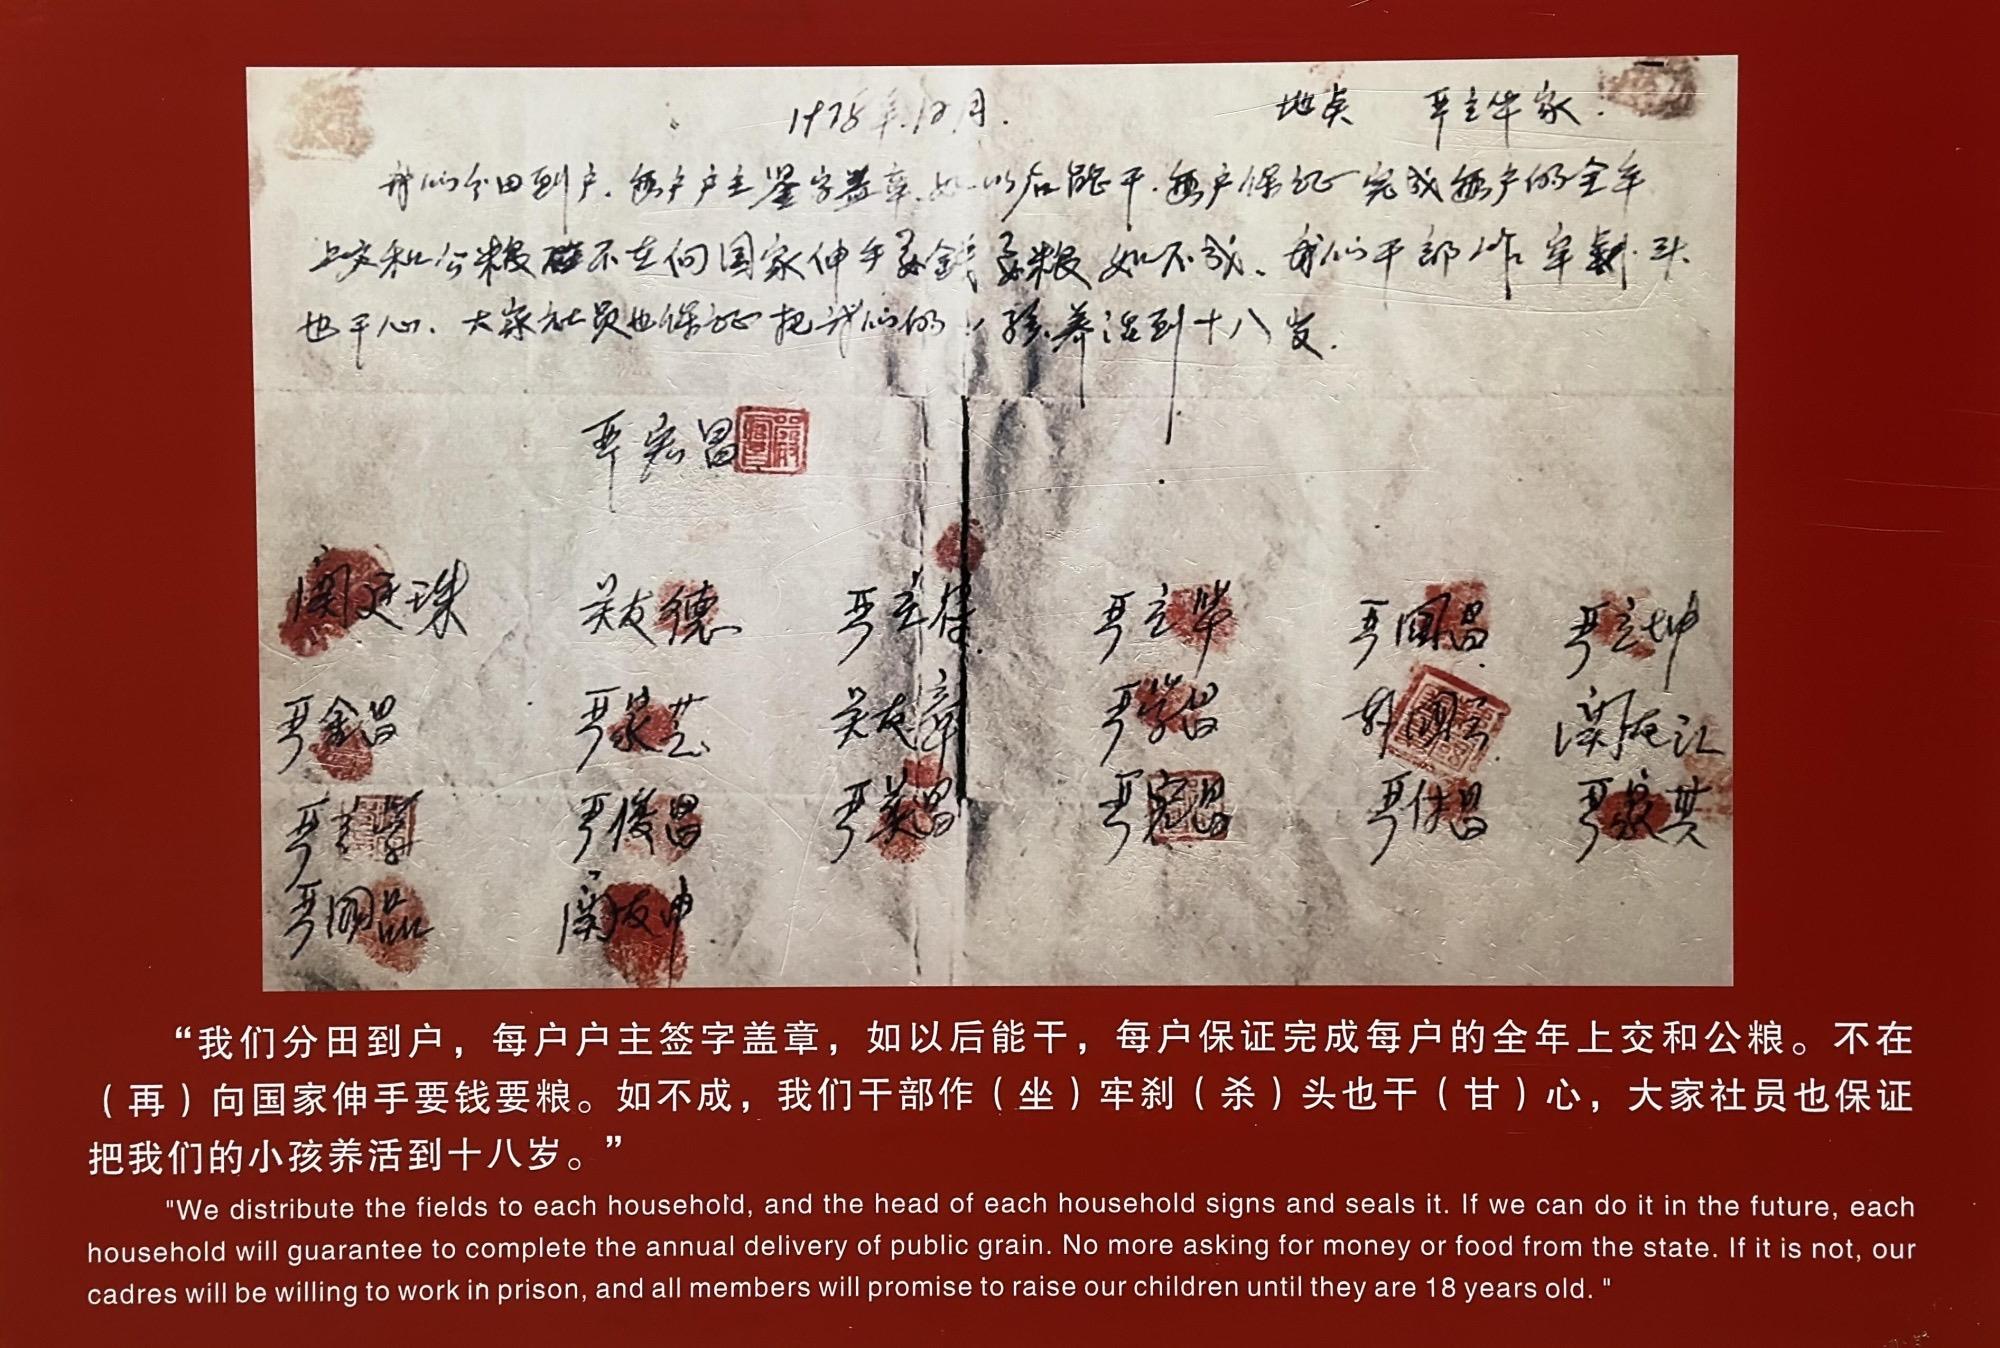 1978年12月. 地点 严立华家.
我们分田到户.每户户主鉴字盖章.如以后能干.每户保证完成每户的全年
上交和公粮不在向国家伸手要钱要粮如不成.我们干部作牢刹头
也干心.大家社员也保证把我们的小孩养活到十八岁.
严宏昌
关廷珠 关友德 严立符 严立华 严国昌 严立坤
严金昌 严家芝 关友章 严学昌 韩国云 关友江
严立学 严俊昌 严美昌 严宏昌 严付昌 严家其
严国品 关友申
“我们分田到户，每户户主签字盖章，如以后能干，每户保证完成每户的全年上交和公粮。不在
（再）向国家伸手要钱要粮。如不成，我们干部作（坐）牢刹（杀）头也干（甘）心，大家社员也保证
把我们的小孩养活到十八岁。”
"We distribute the fields to each household, and the head of each household signs and seals it. If we can do it in the future, each
household will guarantee to complete the annual delivery of public grain. No more asking for money or food from the state. If it is not, our
cadres will be willing to work in prison, and all members will promise to raise our children until they are 18 years old. "